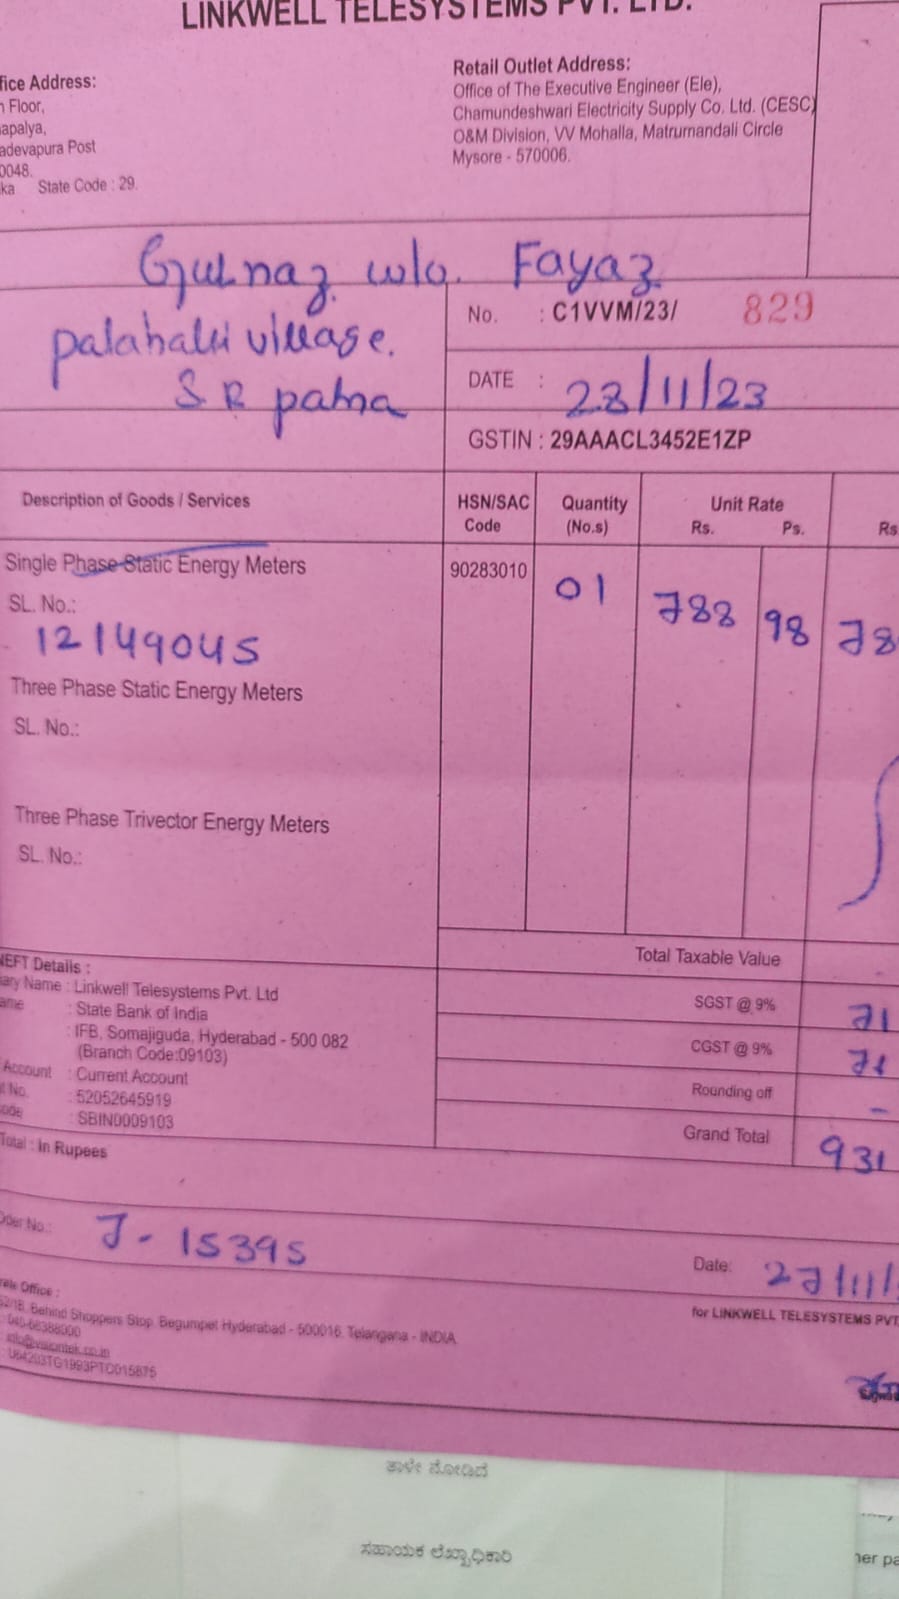 LINKWELL TELESYSTEMS PVT. LTD.
fice Address:
n Floor,
apalya,
adevapura Post
0048.
ka State Code : 29.
Retail Outlet Address:
Office of The Executive Engineer (Ele),
Chamundeshwari Electricity Supply Co. Ltd. (CESC)
O&M Division, VV Mohalla, Matrumandali Circle
Mysore - 570006.
Gulnaz w/o. Fayaz
palahalli village.
S R patna
No. : C1VVM/23/ 829
DATE : 28/11/23
GSTIN : 29AAACL3452E1ZP
Description of Goods / Services HSN/SAC Code Quantity (No.s) Unit Rate Rs. Ps. Rs
Single Phase Static Energy Meters 90283010 01 788 98 78
SL. No.:
12149045
Three Phase Static Energy Meters
SL. No.:
Three Phase Trivector Energy Meters
SL. No.:
Total Taxable Value
SGST @ 9% 71
CGST @ 9% 71
Rounding off -
Grand Total 931
NEFT Details :
ary Name : Linkwell Telesystems Pvt. Ltd
ame : State Bank of India
: IFB, Somajiguda, Hyderabad - 500 082
(Branch Code:09103)
Account : Current Account
t No. : 52052645919
ode : SBIN0009103
Total : In Rupees
Order No.: J - 15395
Date: 27/11/
for LINKWELL TELESYSTEMS PVT
Office :
Behind Shoppers Stop, Begumpet Hyderabad - 500016. Telangana - INDIA
: 040-66388000
info@visiontek.co.in
: U64203TG1993PTC015875
ತಾಳೇ ನೋಡಿದೆ
ಸಹಾಯಕ ಲೆಖ್ಖಾಧಿಕಾರಿ
her pa